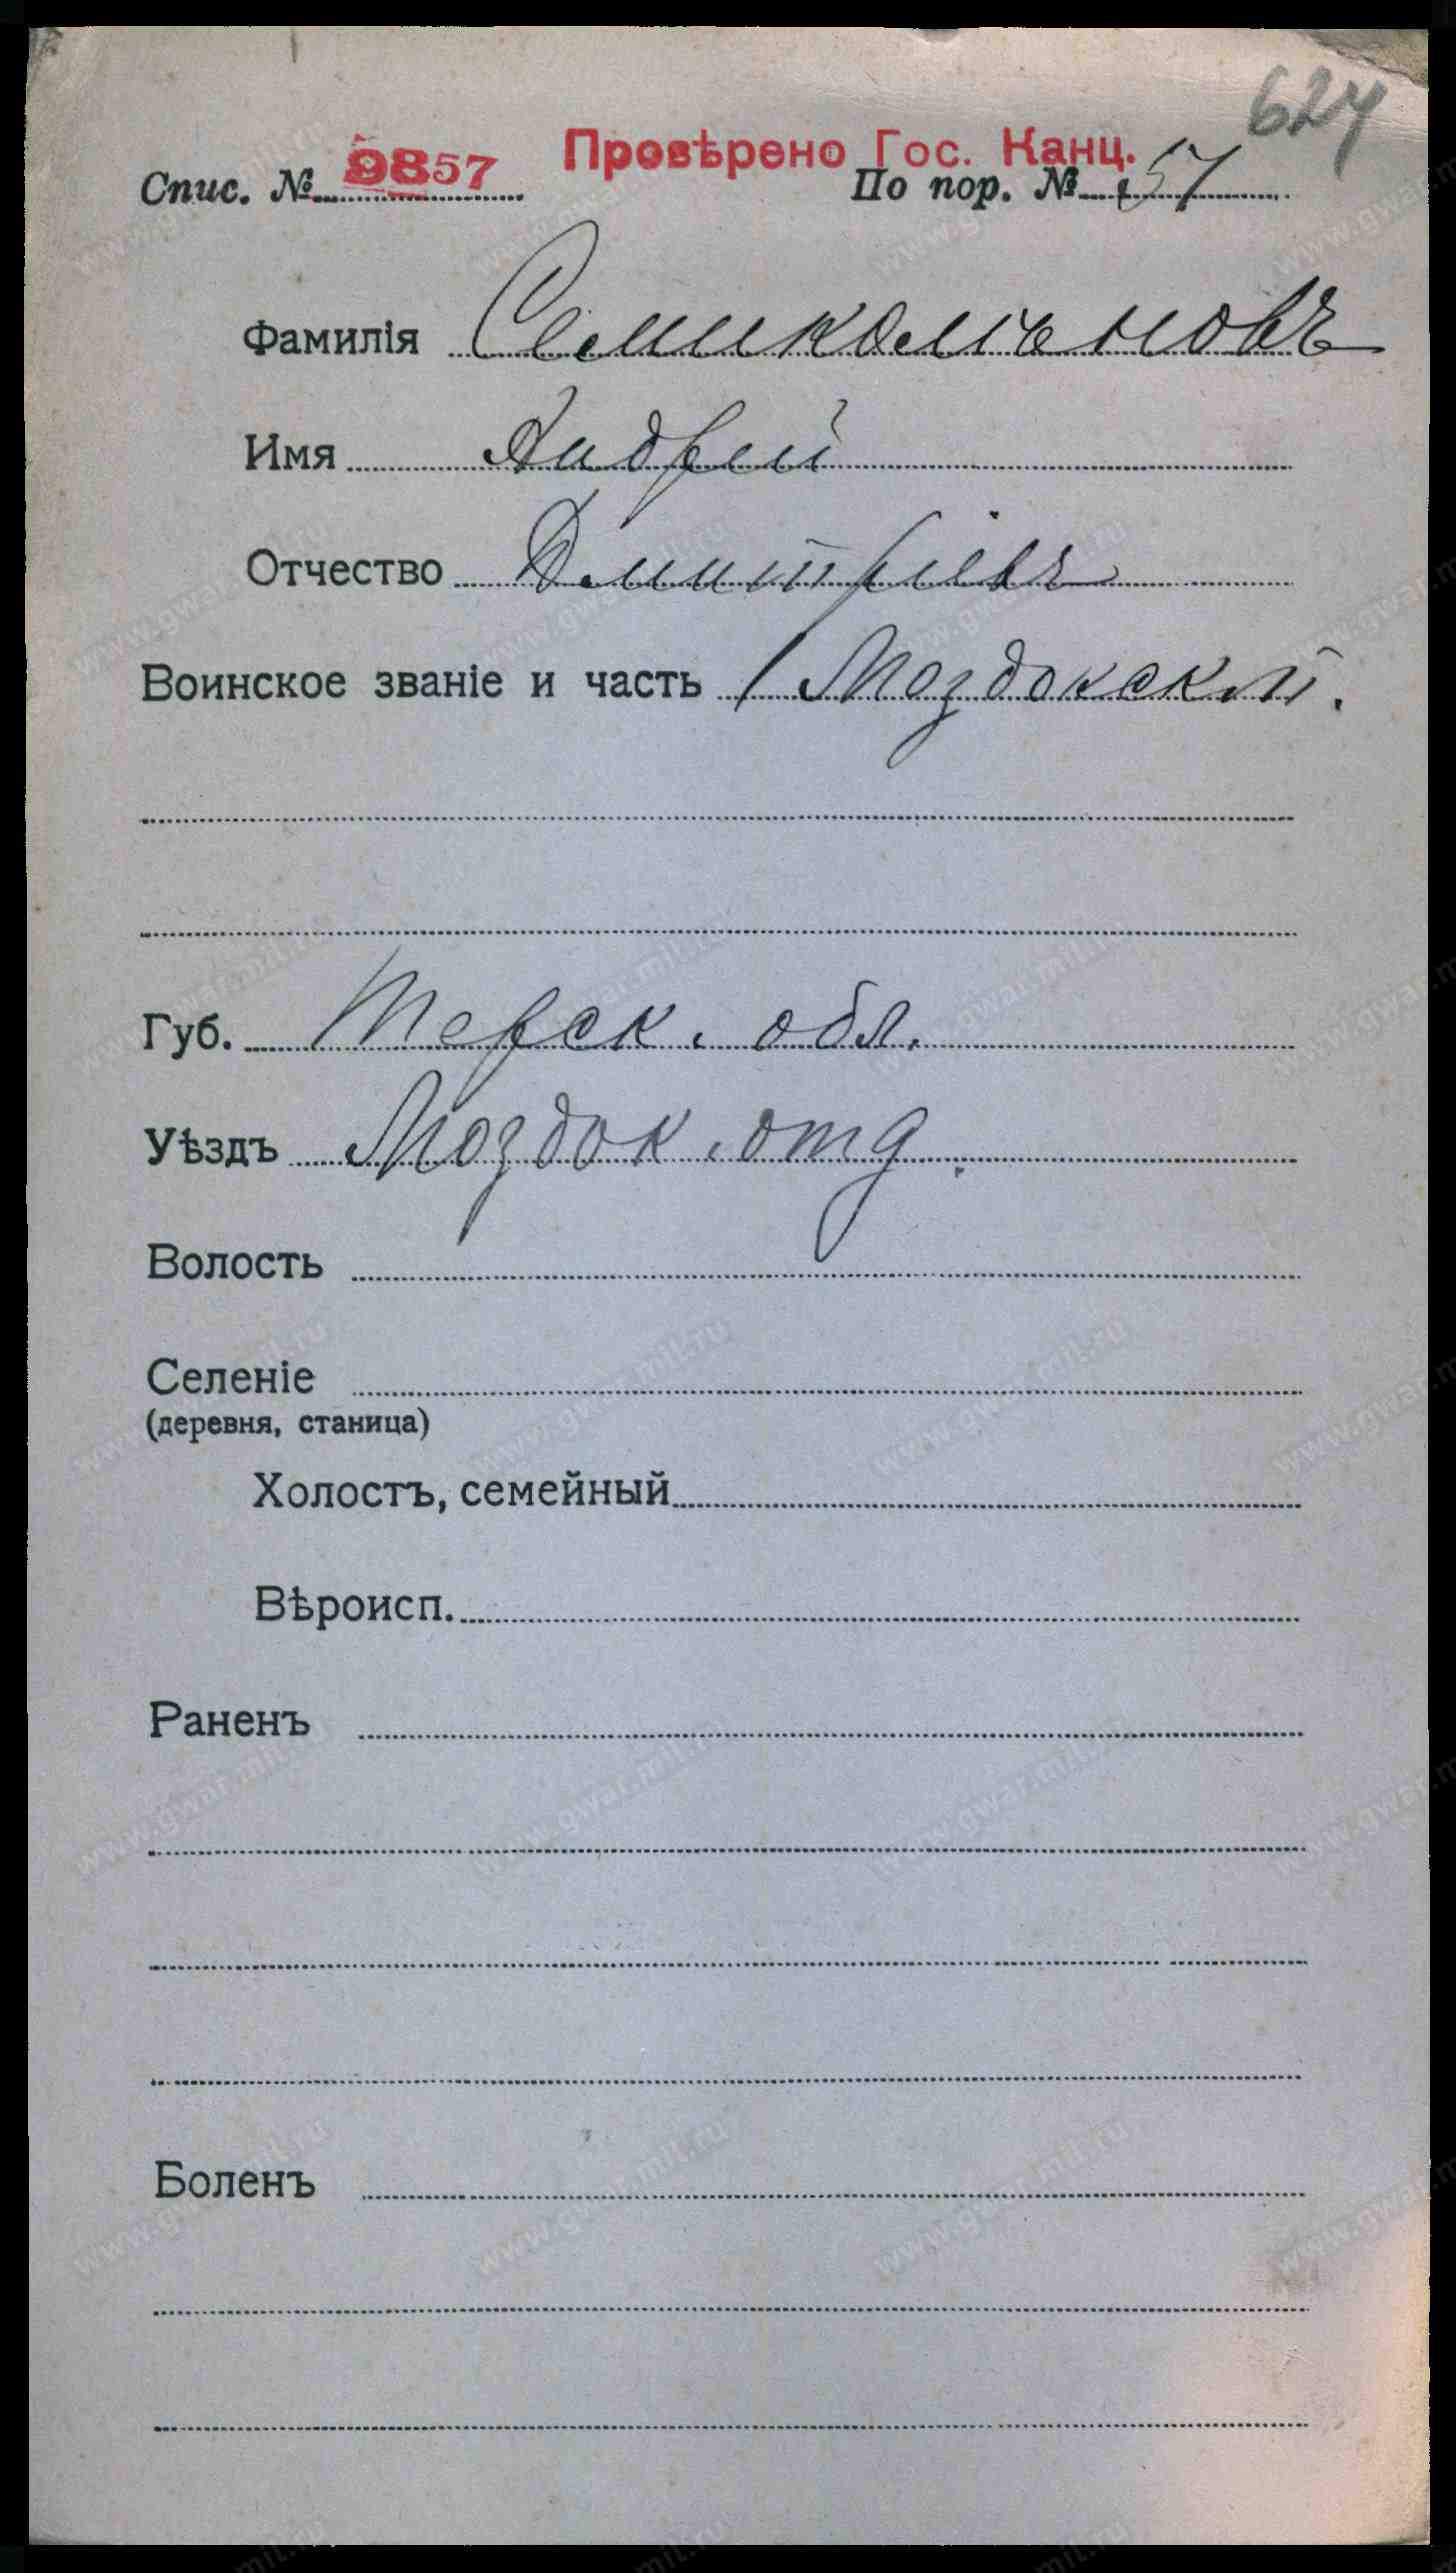 624
Провѣрено Гос. Канц.
Спис. № 9857 По пор. № 57
Фамилія Семикольновъ
Имя Андрей
Отчество Дмитріевъ
Воинское званіе и часть 1 Моздокскій.
Губ. Терск. обл.
Уѣздъ Моздок. отд.
Волость
Селеніе
(деревня, станица)
Холостъ, семейный
Вѣроисп.
Раненъ
Боленъ